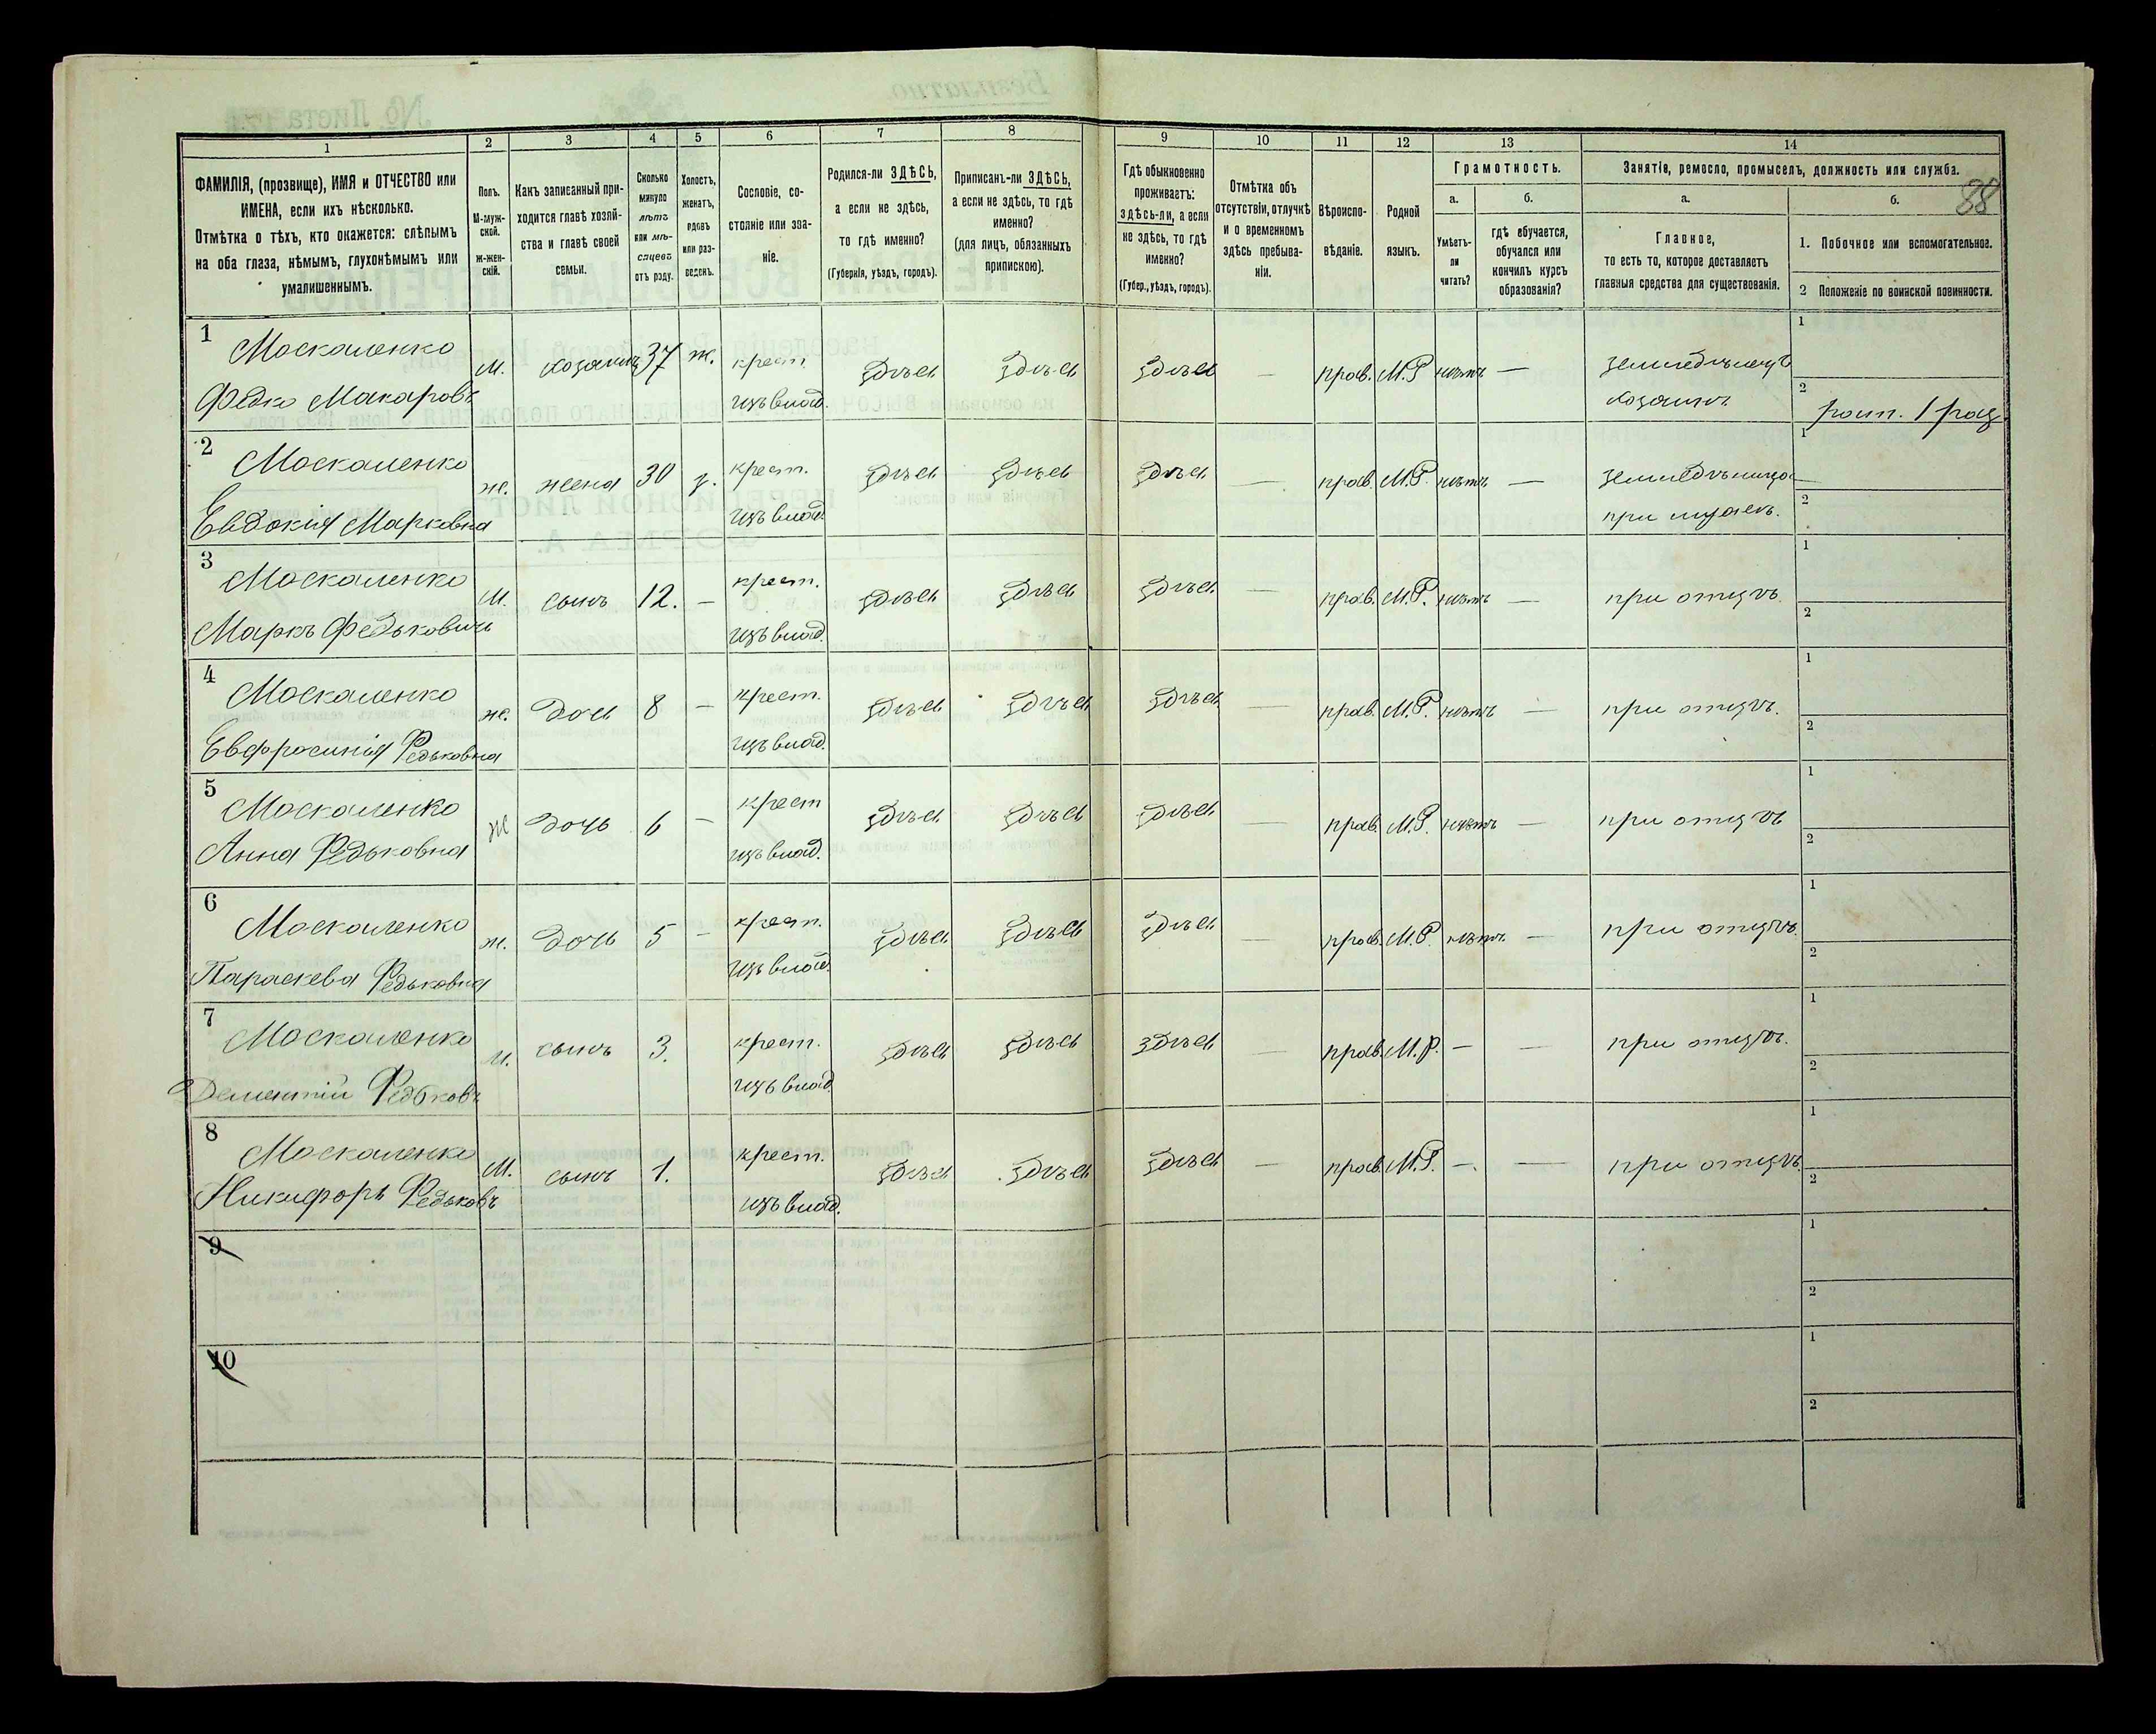 88
1 2 3 4 5 6 7 8 9 10 11 12 13 14
ФАМИЛІЯ, (прозвище), ИМЯ и ОТЧЕСТВО или
ИМЕНА, если ихъ нѣсколько.
Отмѣтка о тѣхъ, кто окажется: слѣпымъ
на оба глаза, нѣмымъ, глухонѣмымъ или
умалишеннымъ.
Полъ.
М-муж-
ской.
Ж-жен-
скій.
Какъ записанный при-
ходится главѣ хозяй-
ства и главѣ своей
семьи.
Сколько
минуло
лѣтъ
или мѣ-
сяцевъ
отъ роду.
Холостъ,
женатъ,
вдовъ
или раз-
веденъ.
Сословіе, со-
стояніе или зва-
ніе.
Родился-ли ЗДѢСЬ,
а если не здѣсь,
то гдѣ именно?
(Губернія, уѣздъ, городъ).
Приписанъ-ли ЗДѢСЬ,
а если не здѣсь, то гдѣ
именно?
(для лицъ, обязанныхъ
припискою).
Гдѣ обыкновенно
проживаетъ:
здѣсь-ли, а если
не здѣсь, то гдѣ
именно?
(Губер., уѣздъ, городъ).
Отмѣтка объ
отсутствіи, отлучкѣ
и о временномъ
здѣсь пребыва-
ніи.
Вѣроиспо-
вѣданіе.
Родной
языкъ.
Грамотность.
а.
Умѣетъ-
ли
читать?
б.
гдѣ обучается,
обучался или
кончилъ курсъ
образованія?
Занятіе, ремесло, промыселъ, должность или служба.
а.
Главное,
то есть то, которое доставляетъ
главныя средства для существованія.
б.
1. Побочное или вспомогательное.
2 Положеніе по воинской повинности.
1
Москаленко
Федко Макаровъ
м. хозяинъ 37 ж. крест. здѣсь здѣсь здѣсь — прав. М.Р. нѣтъ — земледѣлецъ
изъ влад. хозяинъ
1
2 ратн. 1 раз.
2
Москаленко
Евдокия Марковна
ж. жена 30 з. крест. здѣсь здѣсь здѣсь — прав. М.Р. нѣтъ — земледѣлица
изъ влад. при мужѣ.
1
2
3
Москаленко
Маркъ Федьковичъ
м. сынъ 12. — крест. здѣсь здѣсь здѣсь — прав. М.Р. нѣтъ — при отцѣ.
изъ влад.
1
2
4
Москаленко
Евфросинія Федьковна
ж. дочь 8 — крест. здѣсь здѣсь здѣсь — прав. М.Р. нѣтъ — при отцѣ.
изъ влад.
1
2
5
Москаленко
Анна Федьковна
ж дочь 6 — крест здѣсь здѣсь здѣсь — прав. М.Р. нѣтъ — при отцѣ
изъ влад.
1
2
6
Москаленко
Параскева Федьковна
ж. дочь 5 — крест. здѣсь здѣсь здѣсь — прав. М.Р. нѣтъ. — при отцѣ.
изъ влад.
1
2
7
Москаленко
Дементій Федьковъ
м. сынъ 3. крест. здѣсь здѣсь здѣсь — прав. М.Р. — — при отцѣ.
изъ влад.
1
2
8
Москаленко
Никифоръ Федьковъ
м. сынъ 1. крест. здѣсь здѣсь здѣсь — прав. М.Р. —. — при отцѣ.
изъ влад.
1
2
9
1
2
10
1
2